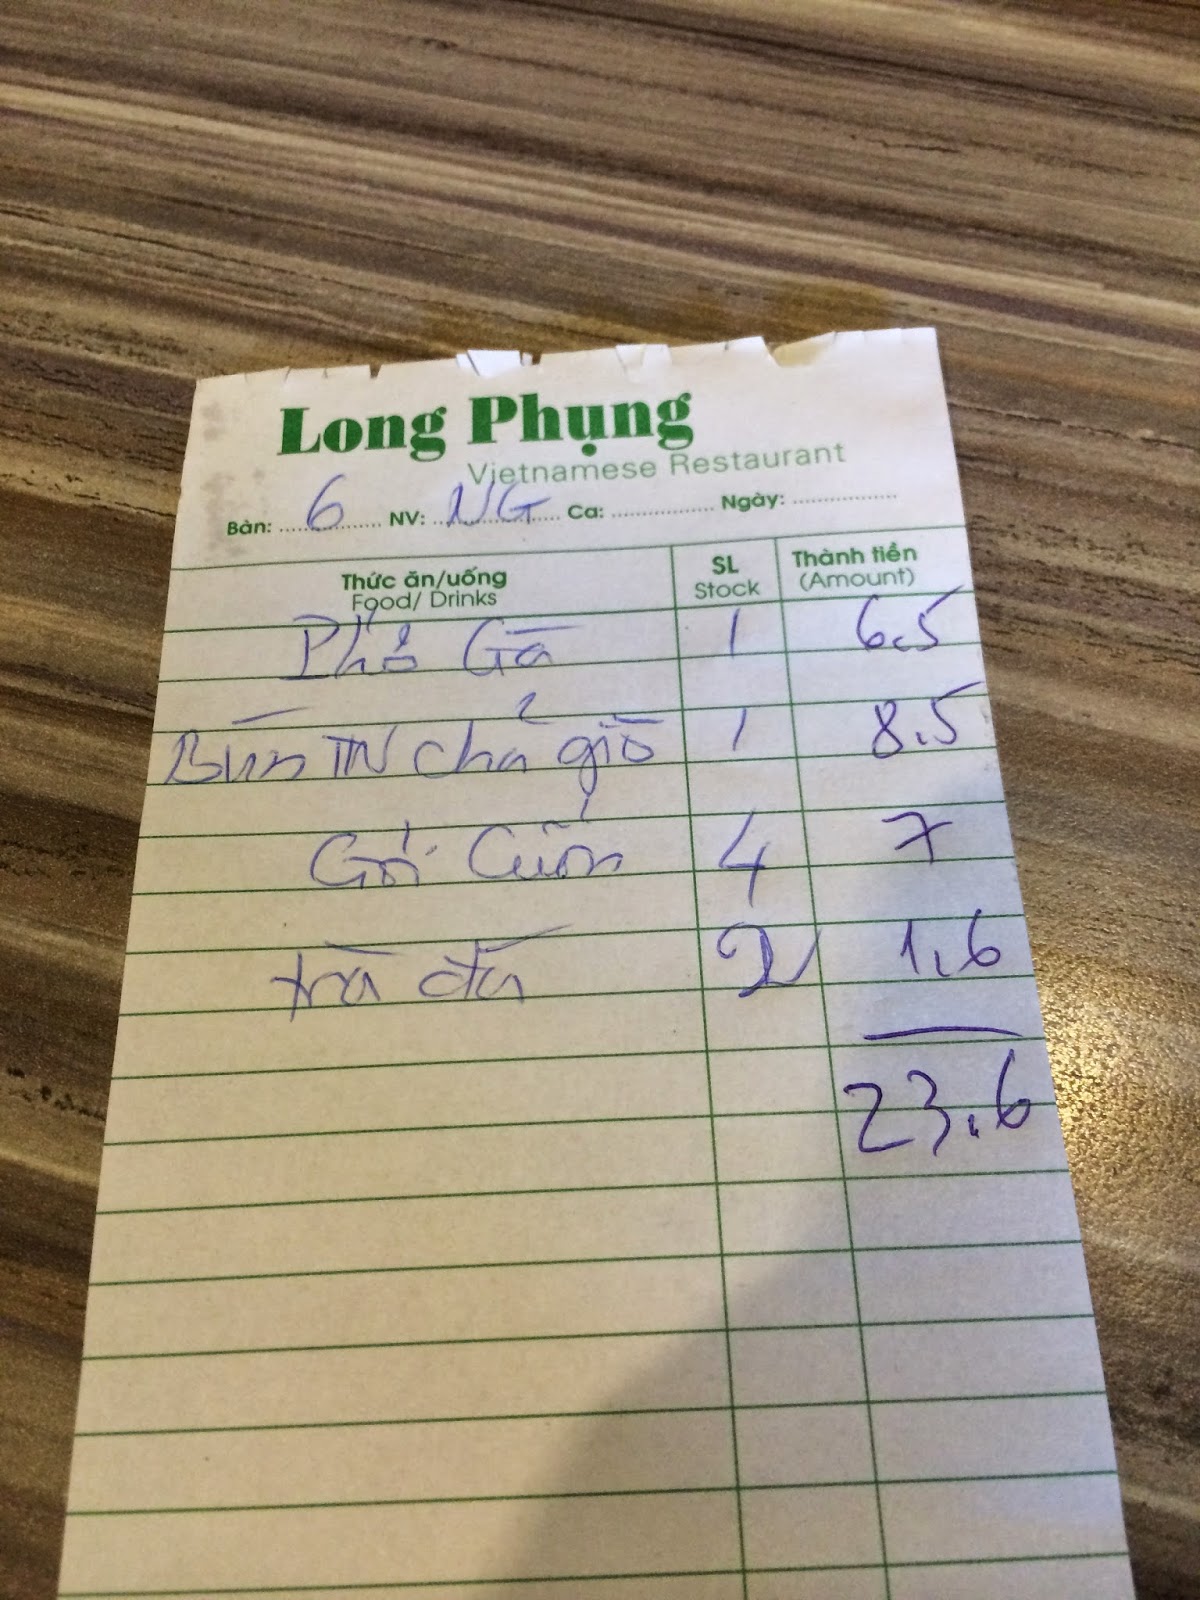 Long Phụng
Vietnamese Restaurant
Bàn: 6 NV: NG Ca: Ngày:
Thức ăn/uống SL Thành tiền
Food/ Drinks Stock (Amount)
Phở Gà 1 6.5
Bún TN chả giò 1 8.5
Gỏi Cuốn 4 7
trà đá 2 1.6
23.6